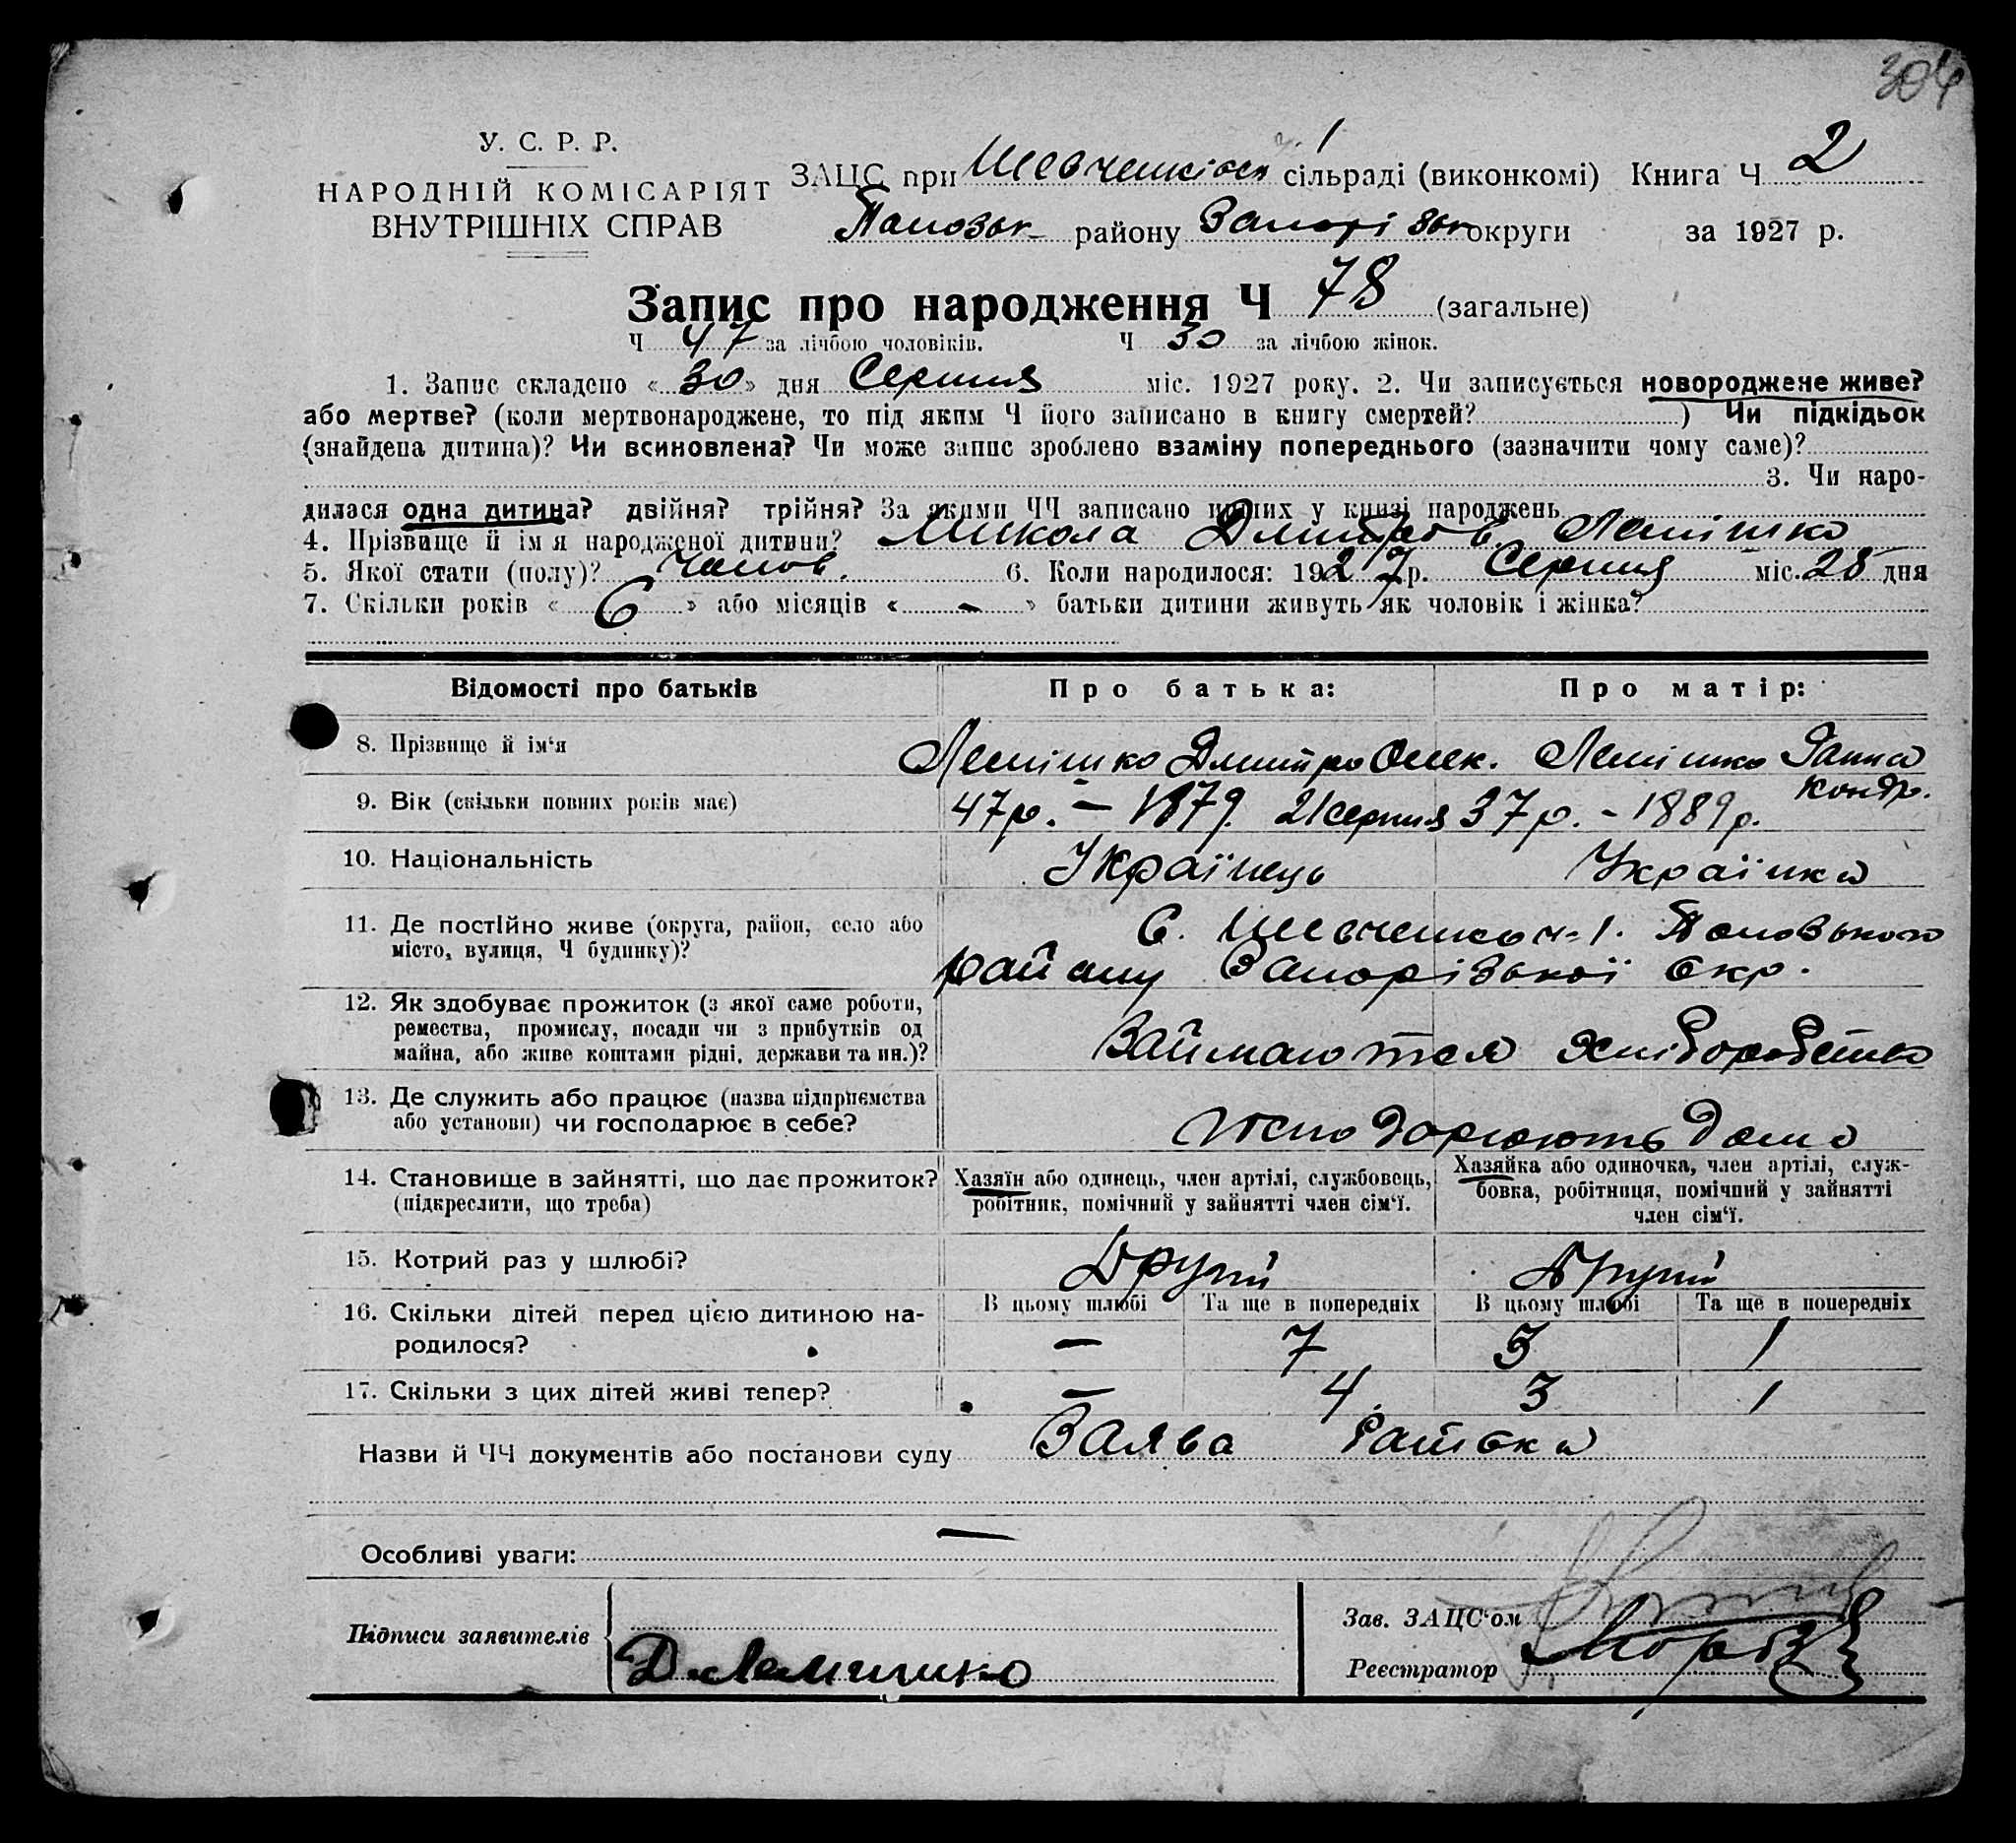 304
У. С. Р. Р.
НАРОДНІЙ КОМІСАРІЯТ
ВНУТРІШНІХ СПРАВ
ЗАЦС при Шевченківськ. 1 сільраді (виконкомі) Книга Ч 2
району Запорізьк округи за 1927 р.
Запис про народження Ч 78 (загальне)
Ч 47 за лічбою чоловіків. Ч 30 за лічбою жінок.
1. Запис складено «30» дня Серпня міс. 1927 року. 2. Чи записується новороджене живе?
або мертве? (коли мертвонароджене, то під яким Ч його записано в книгу смертей?) Чи підкідьок
(знайдена дитина)? Чи всиновлена? Чи може запис зроблено взаміну попереднього (зазначити чому саме)?
3. Чи наро-
дилася одна дитина? двійня? трійня? За якими ЧЧ записано инших у книзі народжень
4. Прізвище й ім я народженої дитини? Микола Дмитров. Лемішко
5. Якої стати (полу)? Чолов. 6. Коли народилося: 1927 р. Серпня міс. 28 дня
7. Скільки років «6» або місяців «-» батьки дитини живуть як чоловік і жінка?
Відомості про батьків Про батька: Про матір:
8. Прізвище й ім‘я Лемішко Дмитро Олек. Лемішко Ганна Кондр.
9. Вік (скільки повних років має) 47 р. — 1879. 21 серпня 37 р. - 1889 р.
10. Національність Українець Українка
11. Де постійно живе (округа, район, село або
місто, вулиця, Ч будинку)?
С. Шевченко ч-1.
району Запорізької Окр.
12. Як здобуває прожиток (з якої саме роботи,
ремества, промислу, посади чи з прибутків од
майна, або живе коштами рідні, держави та ин.)?
Займаються хліборобств
13. Де служить або працює (назва підприємства
або установи) чи господарює в себе?
Господарюють дома
14. Становище в зайнятті, що дає прожиток?
(підкреслити, що треба)
Хазяїн або одинець, член артілі, службовець,
робітник, помічний у зайнятті член сім‘ї.
Хазяйка або одиночка, член артілі, служ-
бовка, робітниця, помічний у зайнятті
член сім‘ї.
15. Котрий раз у шлюбі? Другий Другий
16. Скільки дітей перед цією дитиною на-
родилося?
В цьому шлюбі Та ще в попередніх В цьому шлюбі Та ще в попередніх
— 7 3 1
17. Скільки з цих дітей живі тепер? — 4 3 1
Назви й ЧЧ документів або постанови суду Заява батька
Особливі уваги: —
Підписи заявителів
Д. Лемишко
Зав. ЗАЦС‘ом
Реєстратор